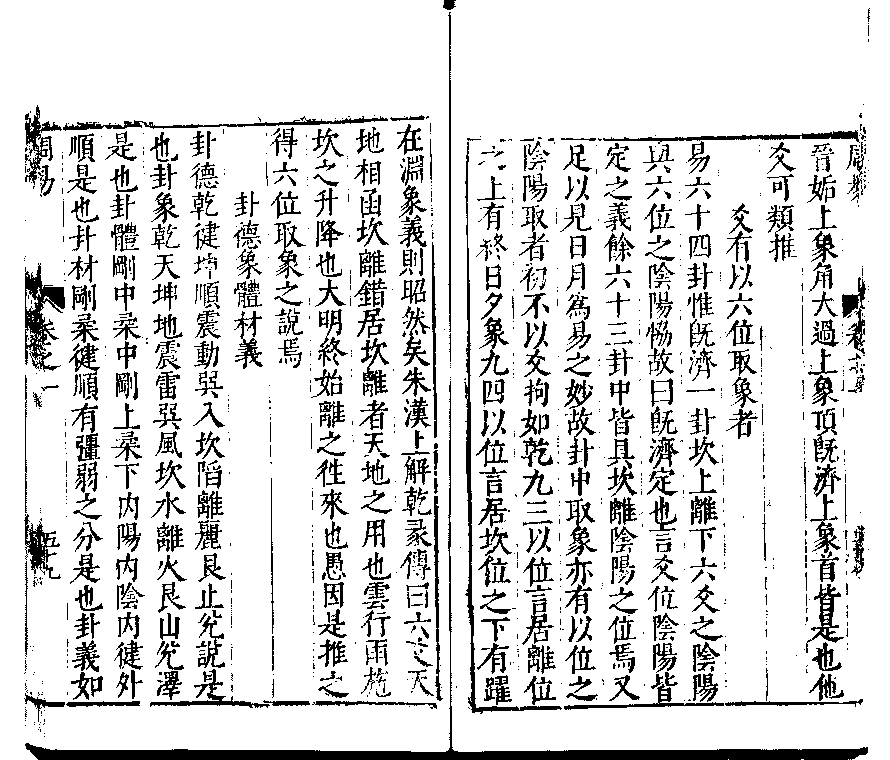 晉姤上象角大過上象頂旣濟上象首皆是也他
爻可類推
爻有以六位取象者
易六十四卦惟旣濟一卦坎上離下六爻之陰陽
與六位之陰陽恊故曰旣濟定也言爻位陰陽皆
定之義餘六十三卦中皆具坎離陰陽之位焉又
足以見日月爲易之妙故卦中取象亦有以位之
陰陽取者初不以爻拘如乾九三以位言居離位
之上有終日夕象九四以位言居坎位之下有躍
在淵象義則昭然矣朱漢上解乾彖傳曰六爻天
地相函坎離錯居坎離者天地之用也雲行雨施
坎之升降也大明終始離之徃來也愚因是推之
得六位取象之說焉
卦德象體材義
卦德乾健坤順震動巽入坎陷離麗艮止兌說是
也卦象乾天坤地震雷巽風坎水離火艮山兌澤
是也卦體剛中柔中剛上柔下內陽內陰內健外
順是也卦材剛柔健順有彊弱之分是也卦義如
周易
卷之一
五十九